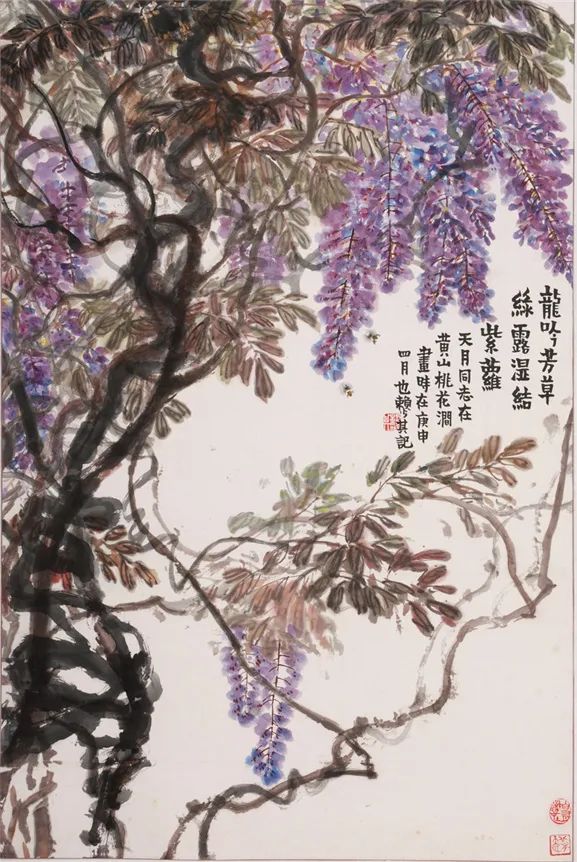 龍吟芳草
綠露湿結
紫蘿
天月同志在
黄山桃花澗
畫時在庚申
四月也賴少其記